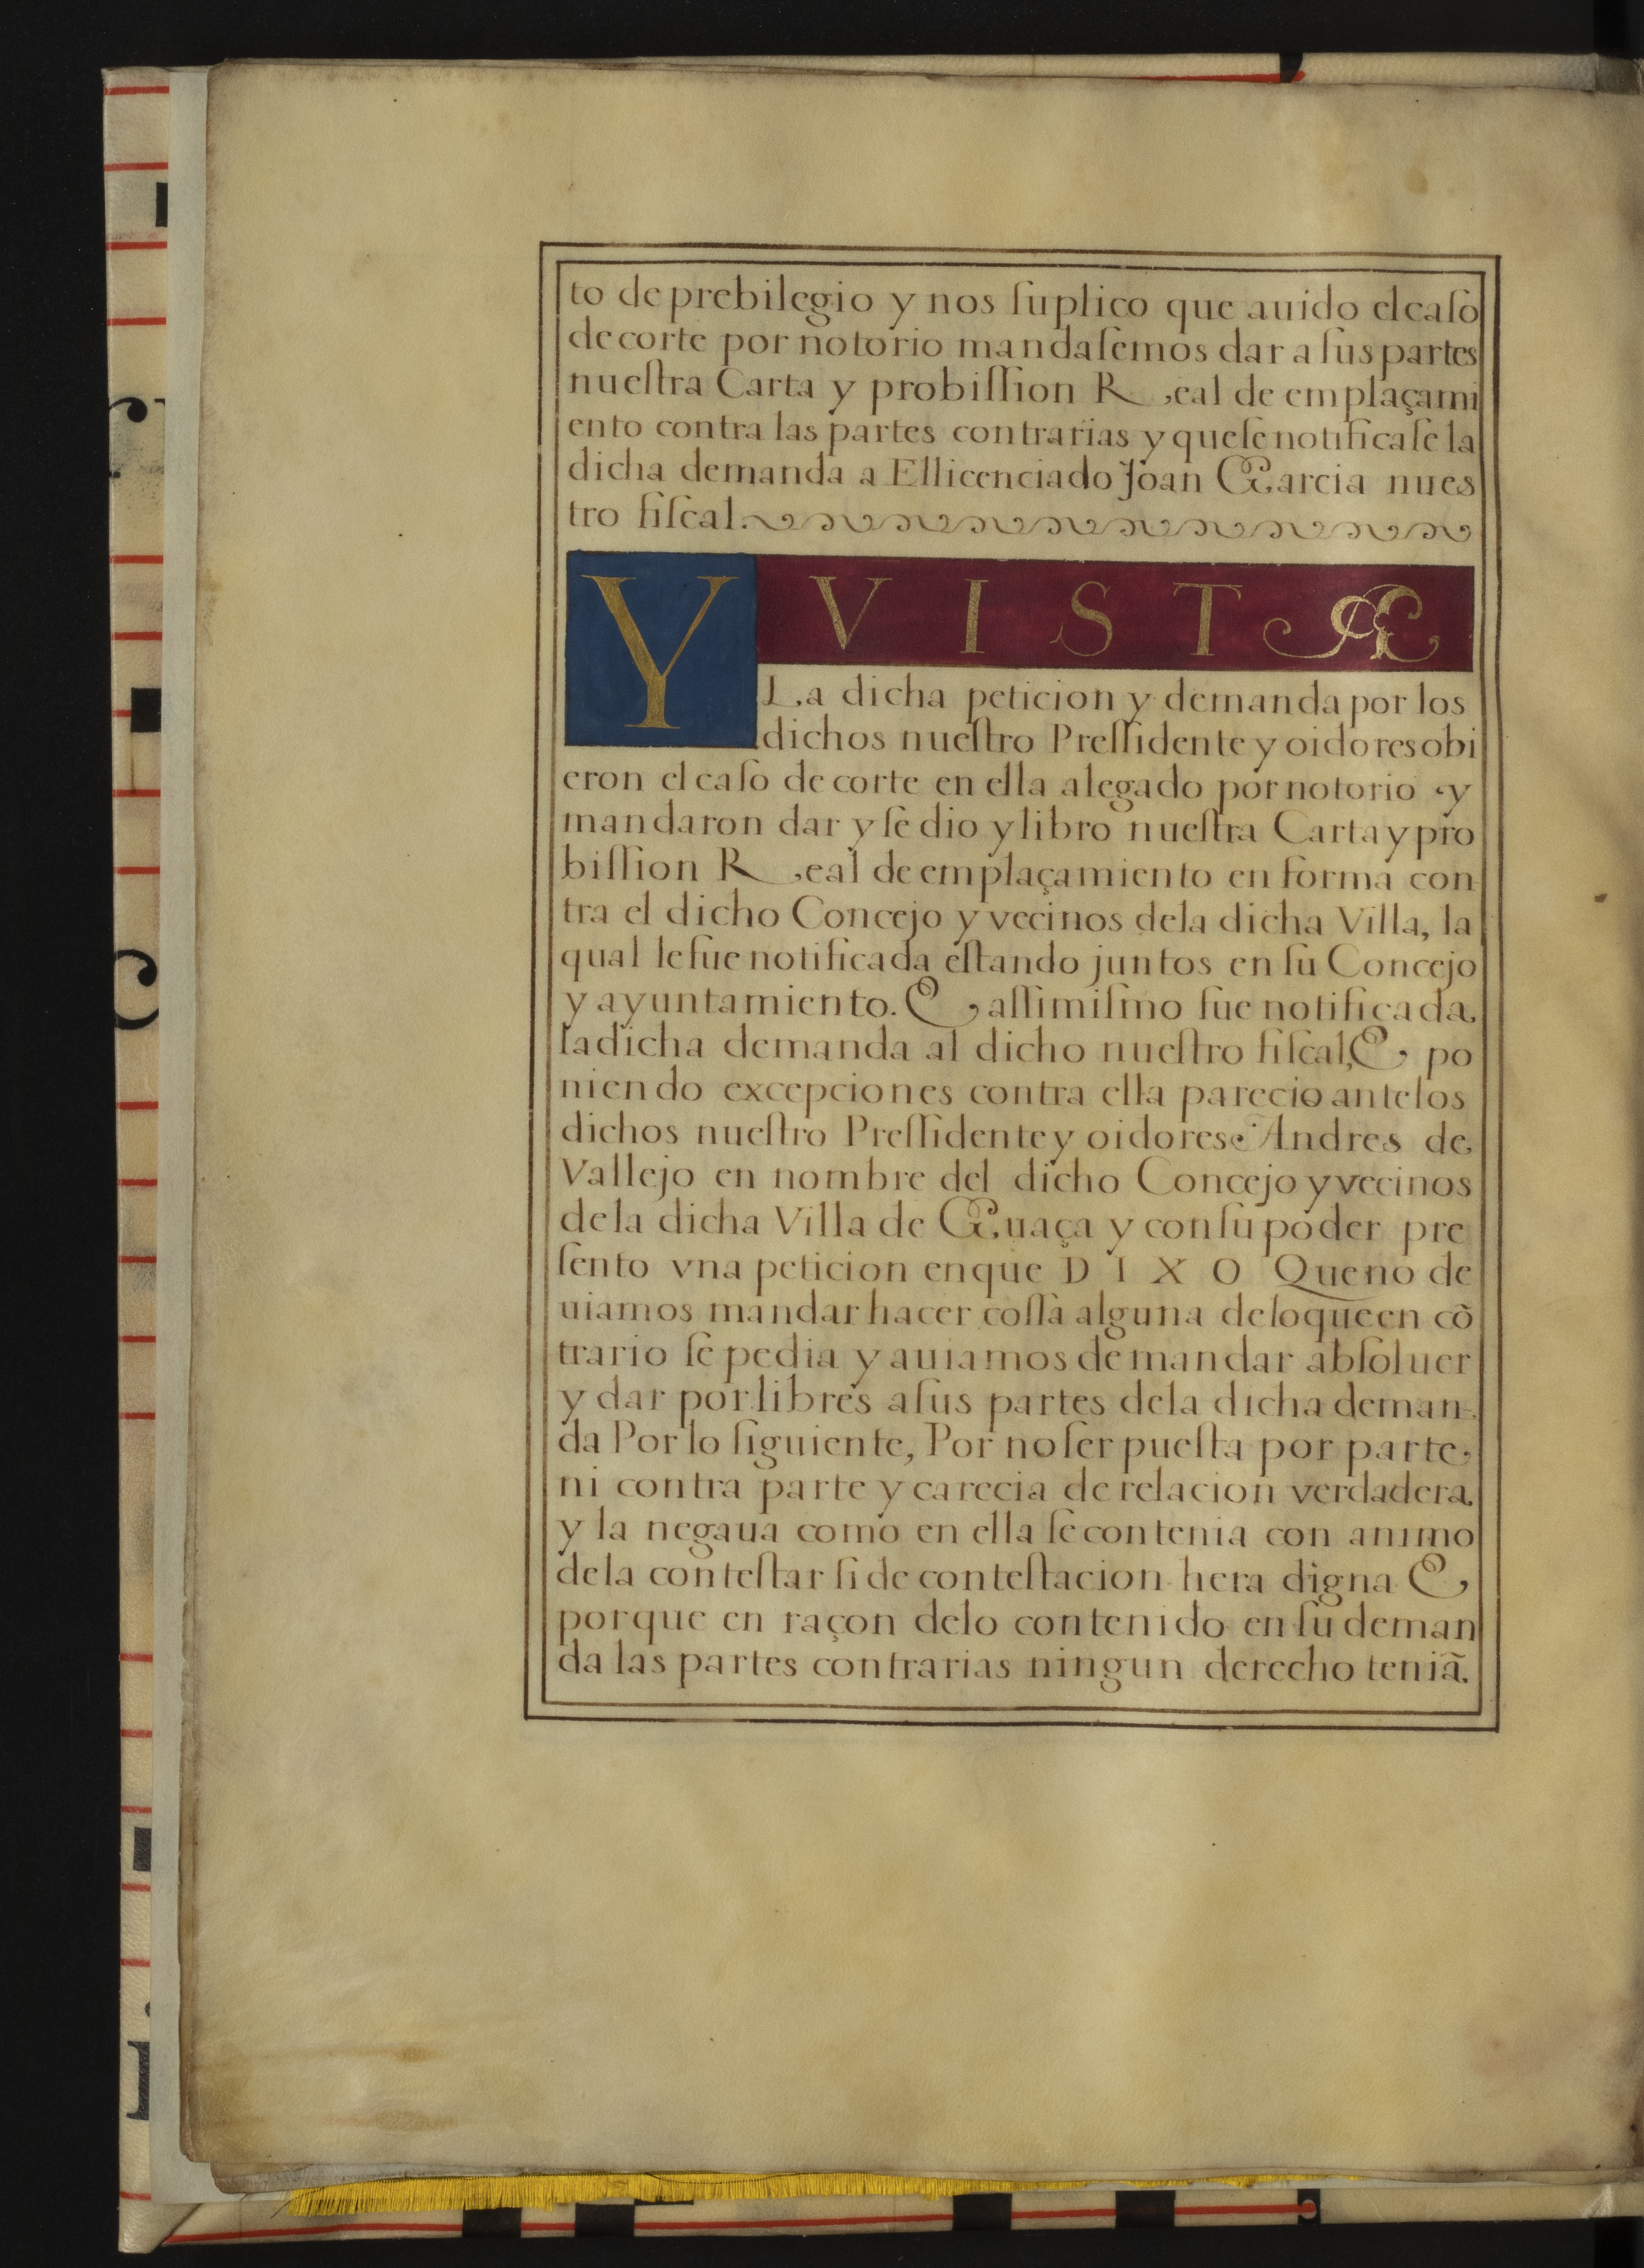 to de prebilegio y nos ſuplico que auido el caſo
de corte por notorio mandaſemos dar a ſus partes
nueſtra Carta y probiſſion Real de emplaçami
ento contra las partes contrarias y que ſe notificaſe la
dicha demanda a El licenciado Joan Garcia nues
tro fiſcal.
Y VISTA
La dicha peticion y demanda por los
dichos nueſtro Preſſidente y oidores obi
eron el caſo de corte en ella alegado por notorio y
mandaron dar y ſe dio y libro nueſtra Carta y pro
biſſion Real de emplaçamiento en forma con
tra el dicho Concejo y vecinos dela dicha Villa, la
qual le fue notificada eſtando juntos en ſu Concejo
y ayuntamiento. E aſſimiſmo fue notificada
la dicha demanda al dicho nueſtro fiſcal, E po
niendo excepciones contra ella parecio ante los
dichos nueſtro Preſſidente y oidores Andres de
Vallejo en nombre del dicho Concejo y vecinos
de la dicha Villa de Guaça y con ſu poder pre
ſento vna peticion en que DIXO Que no de
uiamos mandar hacer coſſa alguna de lo que en cõ
trario ſe pedia y auiamos de mandar abſoluer
y dar por libres a ſus partes dela dicha deman-
da Por lo ſiguiente, Por no ſer pueſta por parte
ni contra parte y carecia de relacion verdadera
y la negaua como en ella ſe contenia con animo
de la conteſtar ſi de conteſtacion hera digna E
porque en raçon delo contenido en ſu deman
da las partes contrarias ningun derecho teniã.